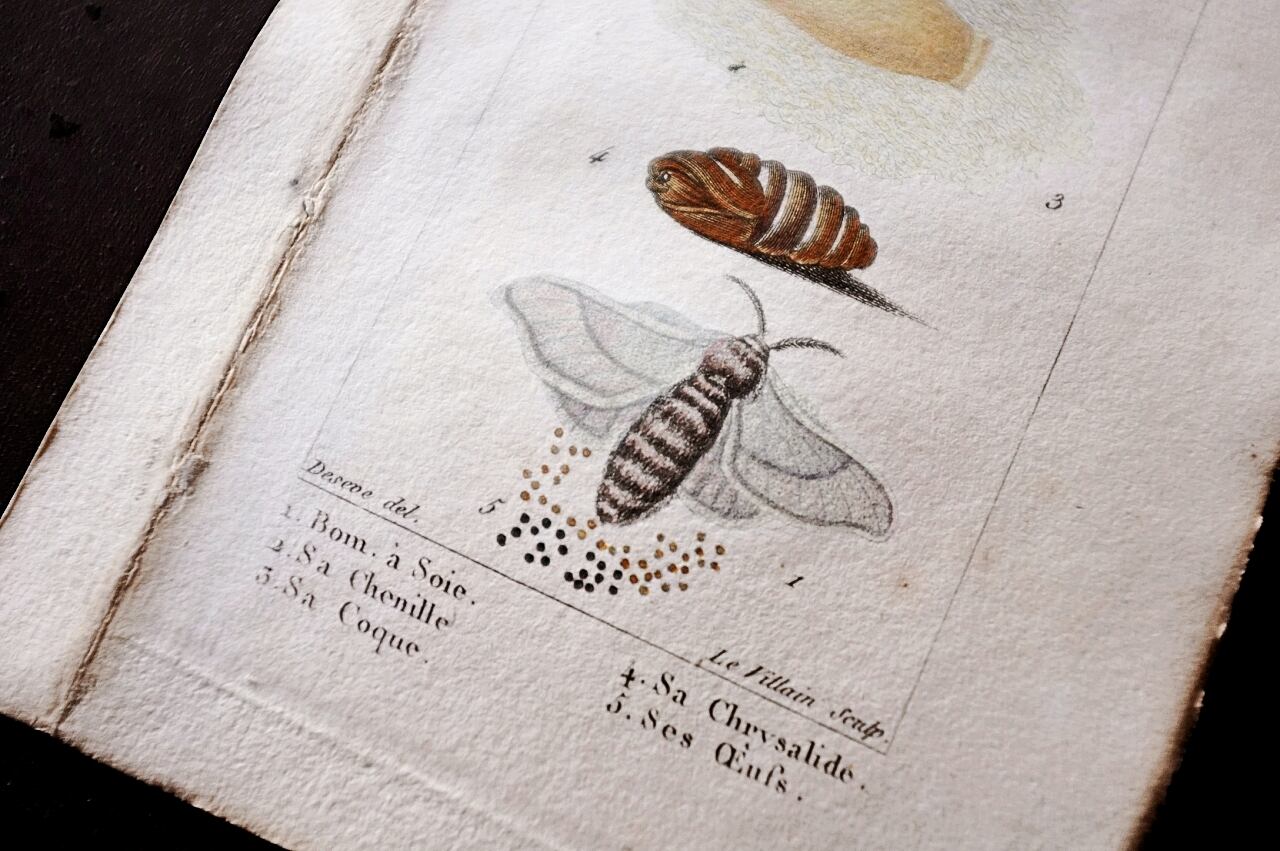 4
3
5
1
Deseve del.
Le Villain Sculp.
1. Bom. à Soie.
2. Sa Chenille
3. Sa Coque.
4. Sa Chrysalide.
5. Ses Œufs.